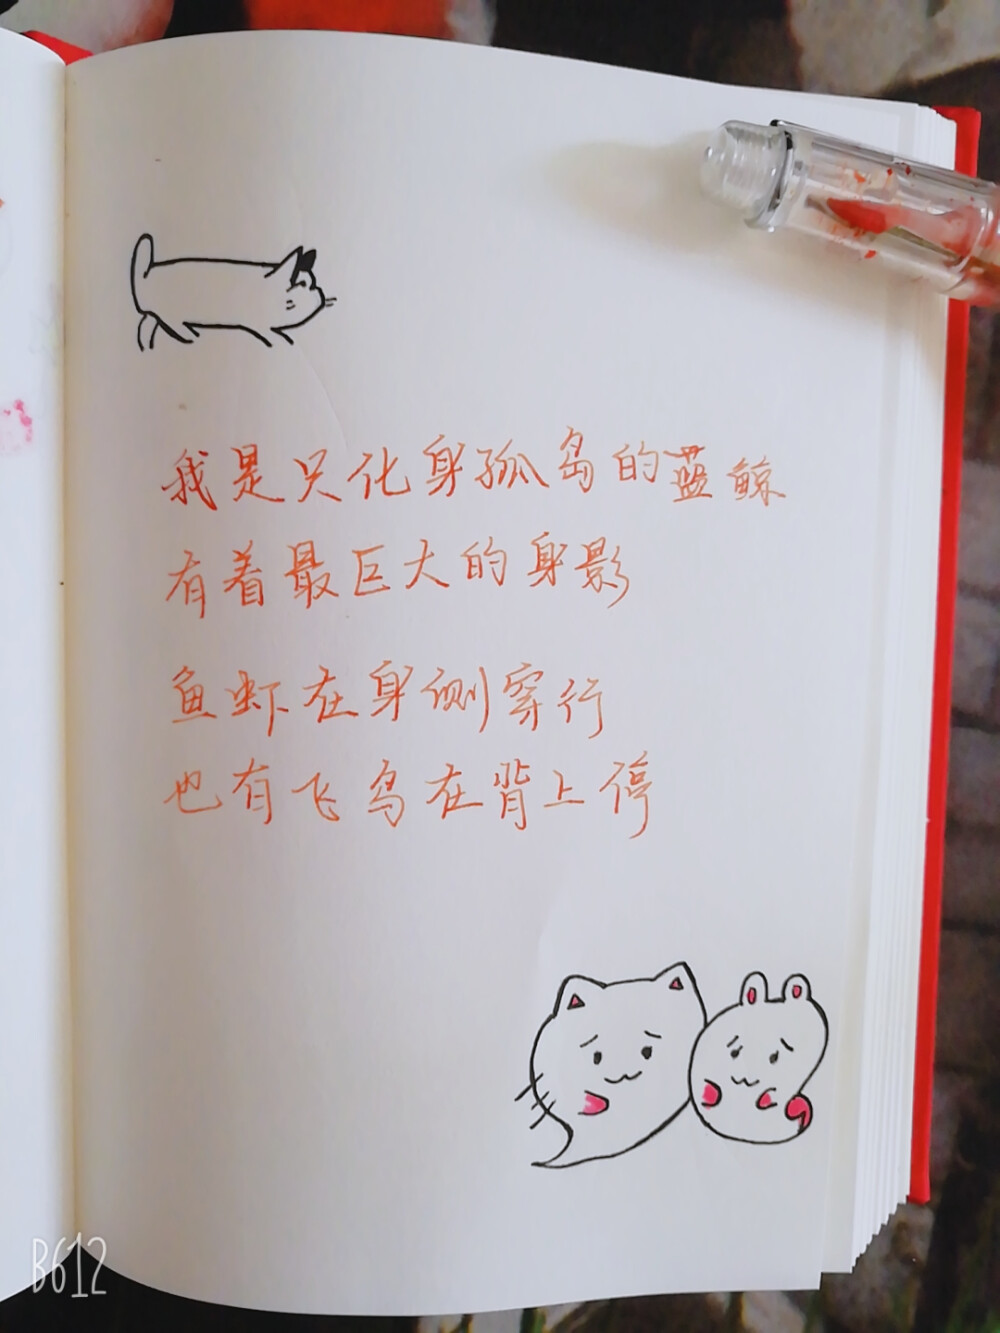 我是只化身孤岛的蓝鲸
有着最巨大的身影
鱼虾在身侧穿行
也有飞鸟在背上停
B612